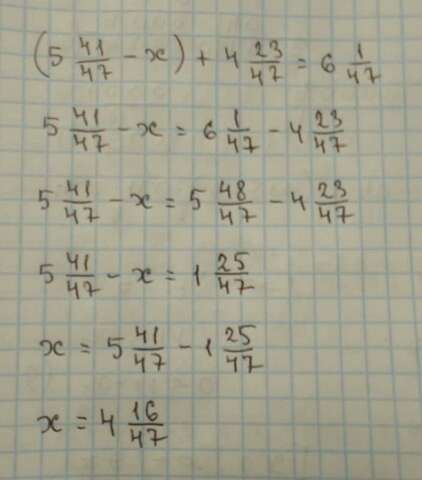 (5 41/47 - x) + 4 23/47 = 6 1/47
5 41/47 - x = 6 1/47 - 4 23/47
5 41/47 - x = 5 48/47 - 4 23/47
5 41/47 - x = 1 25/47
x = 5 41/47 - 1 25/47
x = 4 16/47